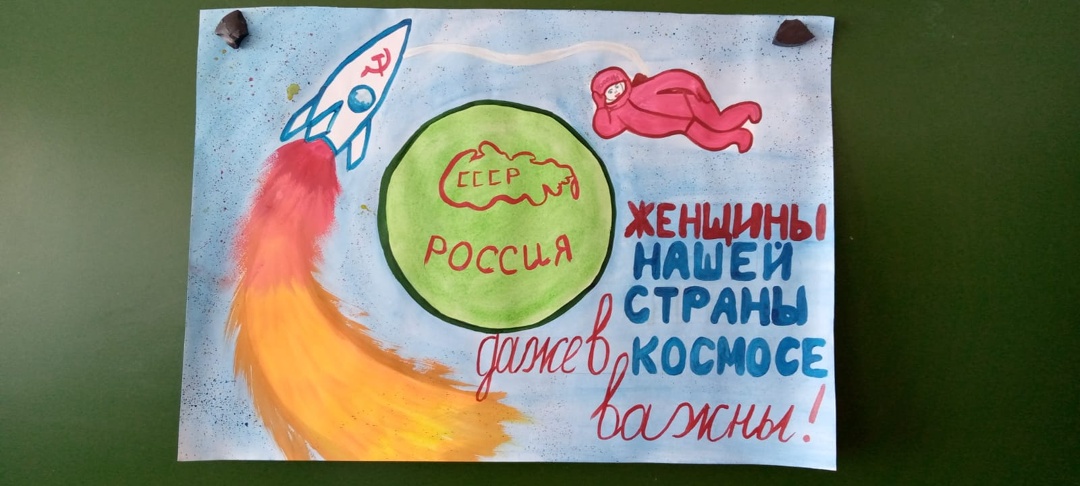 СССР
РОССИЯ
ЖЕНЩИНЫ
НАШЕЙ
СТРАНЫ
даже в КОСМОСЕ
важны!